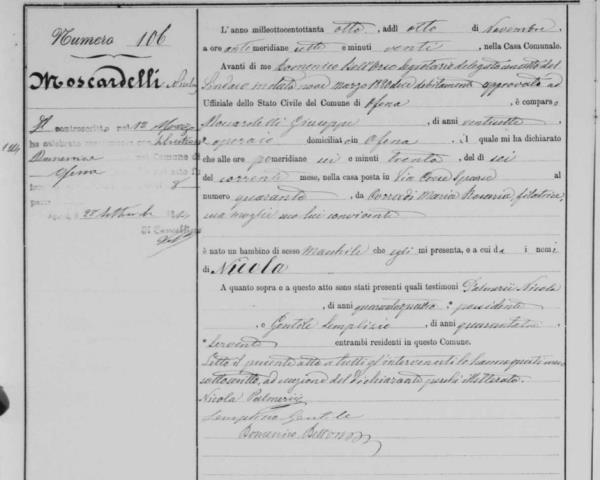 Numero 106
Moscardelli Nicola
Il controscritto nel 12 Marzo
1914
ha celebrato matrimonio con
Domenica nel Comune di
Ofena
25 Settembre
Il Cancelliere
L'anno milleottocentottanta otto, addì otto di Novembre
a ore antemeridiane sette e minuti venti, nella Casa Comunale.
Avanti di me Domenico Segretario delegato con atto del
Sindaco in data nove Marzo debitamente approvato
Uffiziale dello Stato Civile del Comune di Ofena, è comparso
Moscardelli Giuseppe, di anni ventisette
operaio domiciliato in Ofena, il quale mi ha dichiarato
che alle ore pomeridiane sei e minuti trenta, del dì sei
del corrente mese, nella casa posta in Via al
numero quaranta, da Corradi Maria filatrice,
sua moglie seco lui convivente
è nato un bambino di sesso Maschile che egli mi presenta, e a cui dà i nomi
di Nicola
A quanto sopra e a questo atto sono stati presenti quali testimoni Palmerii Nicola
, di anni quarantaquattro possidente
, e Gentile Semplizio, di anni
Servente entrambi residenti in questo Comune.
Letto il presente atto a tutti gl'intervenuti lo hanno questi meco
sottoscritto, ad eccezione del dichiarante perchè illetterato.
Nicola Palmerii
Semplizio Gentile
Domenico